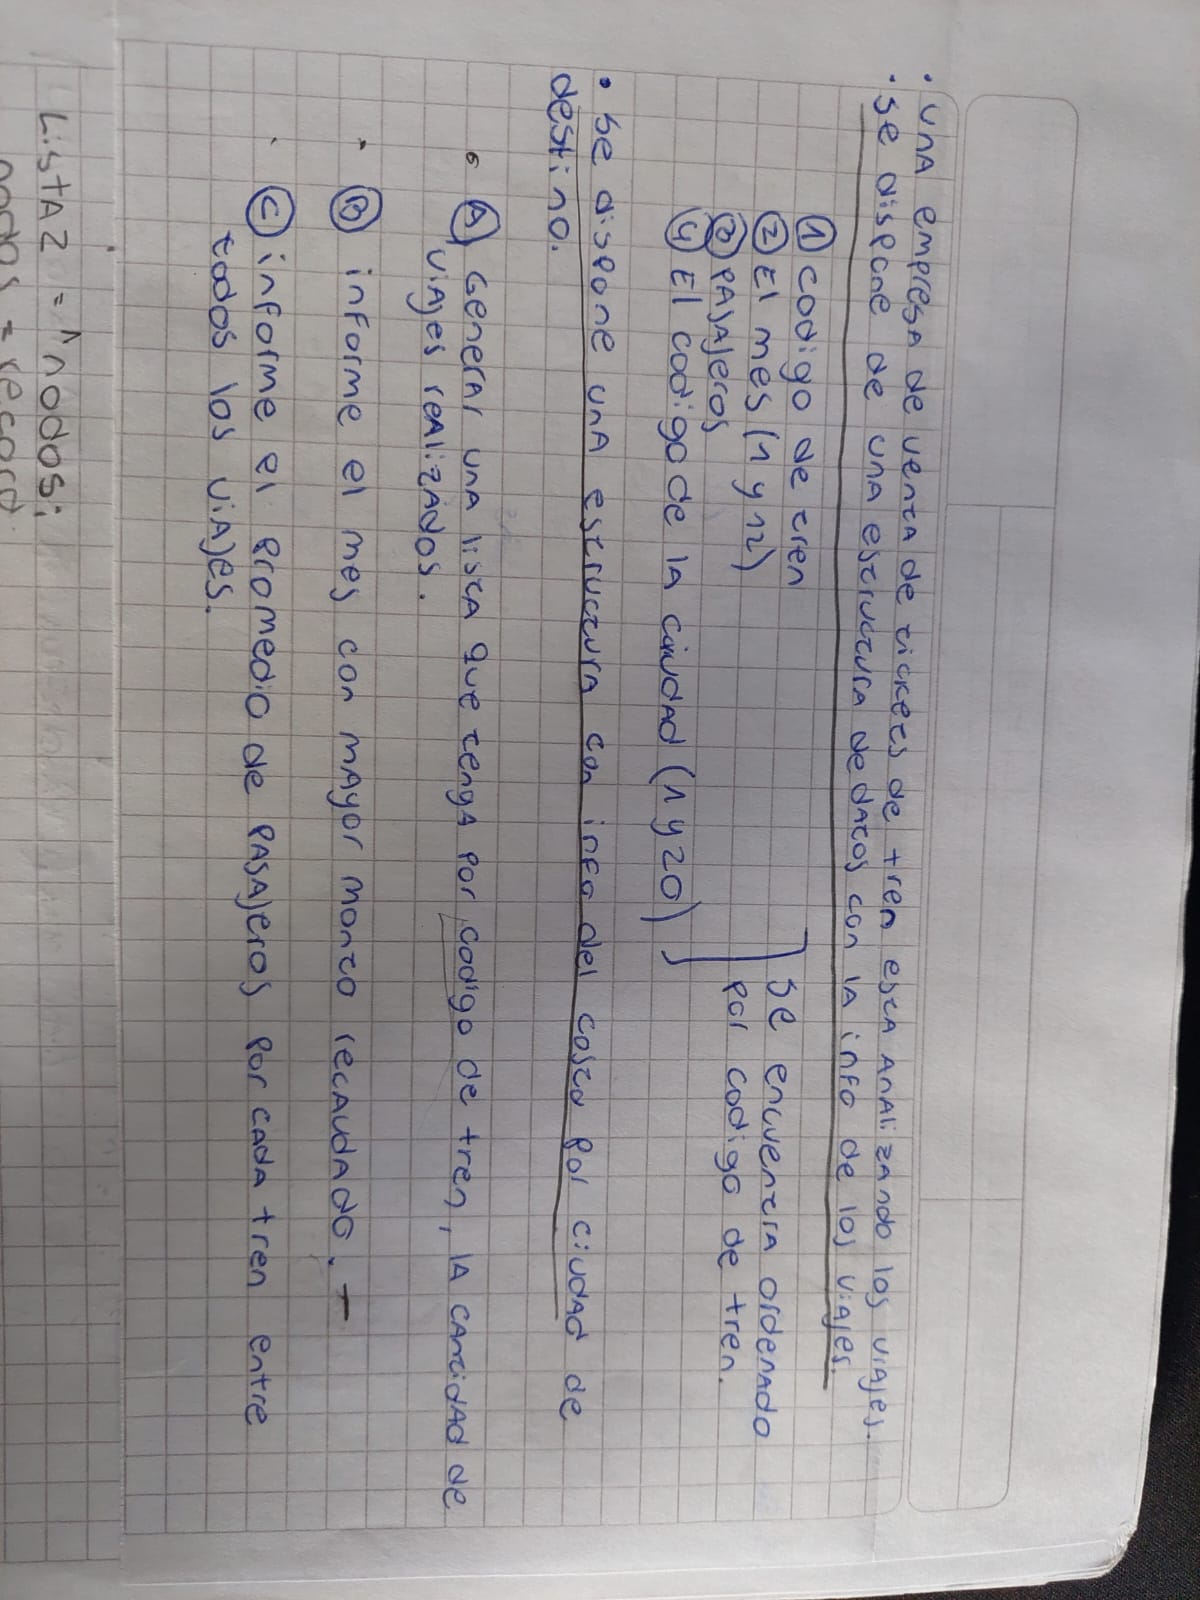 • UNA empresa de venta de tickets de tren esta analizando los viajes.
• se dispone de una estructura de datos con la info de los viajes.
① codigo de tren
② El mes (1 y 12)
③ pasajeros
④ El codigo de la ciudad (1 y 20)
se encuentra ordenado
por codigo de tren.
• se dispone una estructura con info del costo por ciudad de
destino.
Ⓐ Generar una lista que tenga por codigo de tren, la cantidad de
viajes realizados.
Ⓑ informe el mes con mayor monto recaudado. –
Ⓒ informe el promedio de pasajeros por cada tren entre
todos los viajes.
Lista2 = ^nodos;
nodos = record